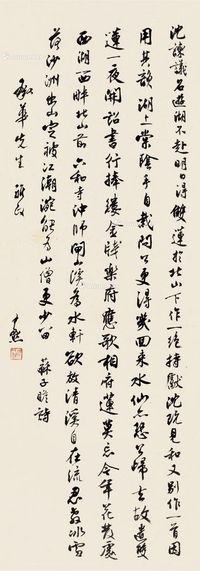 沈諫議召遊湖不赴明日得雙蓮於北山下作一絕持獻沈既見和又別作一首因
用其韻湖上棠陰手自栽問公更得幾回來水仙亦恐公歸去故遣雙
蓮一夜開詔書行捧縷金牋樂府應歌相府蓮莫忘今年花發處
西湖西畔北山前六和寺沖師閘山溪為水軒欲放清溪自在流忍教冰雪
落沙洲出山定被江潮涴能為山僧更少留 蘇子瞻詩
華先生雅正 尹默